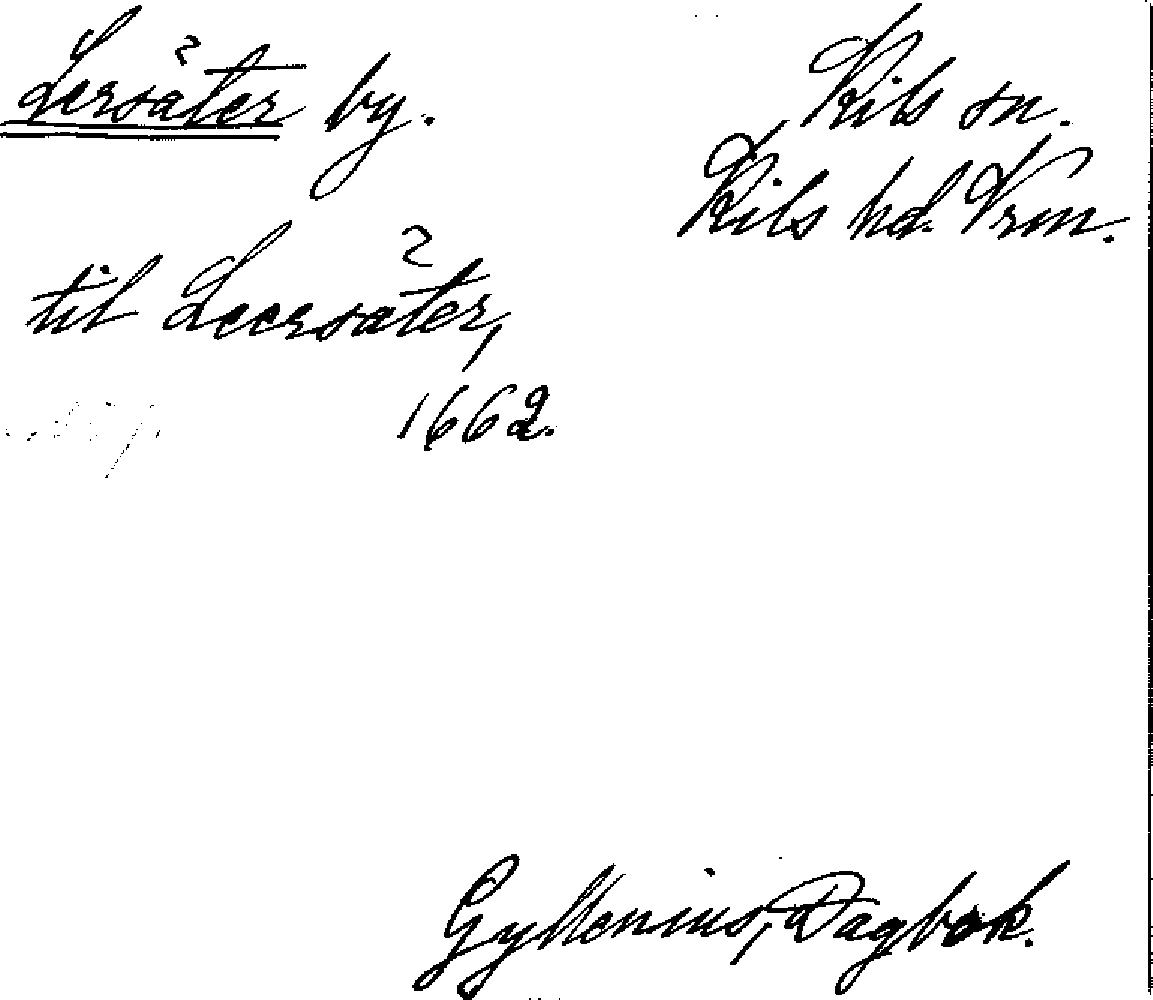 Lersäter by.
Kils sn.
Kils hd. Vrm.
til Leersäter,
1662.
Gyllenius, Dagbok.